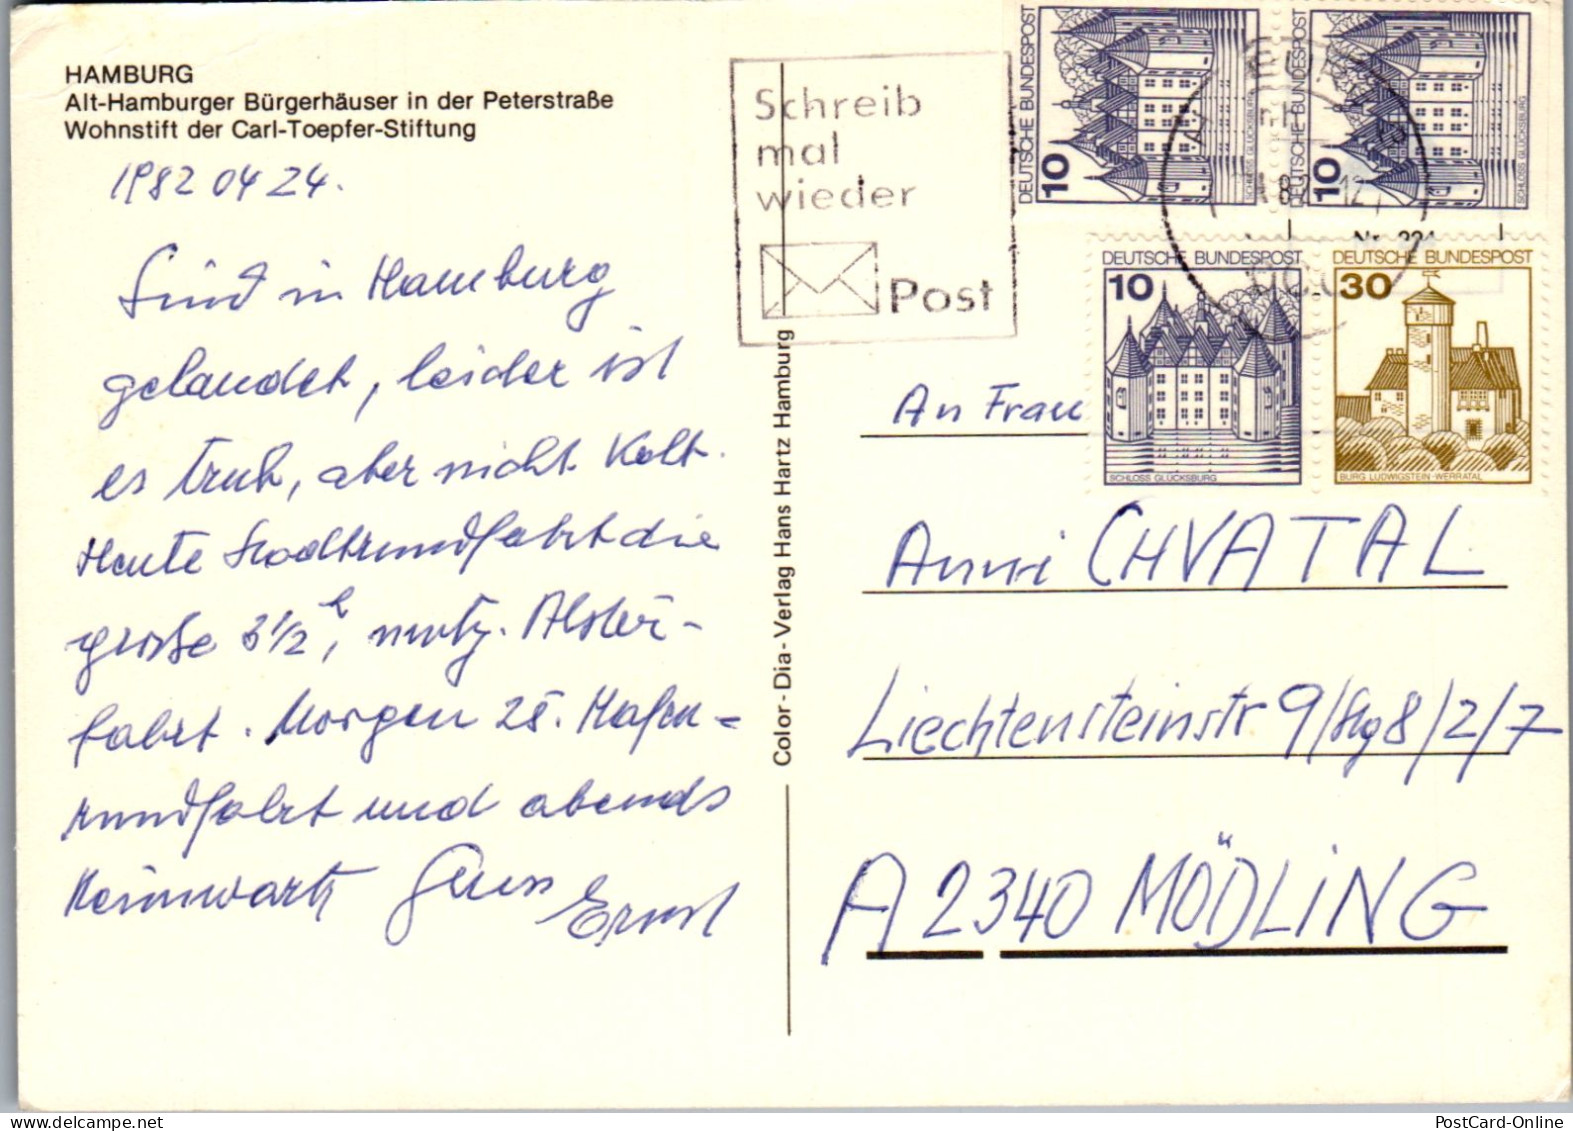 HAMBURG
Alt-Hamburger Bürgerhäuser in der Peterstraße
Wohnstift der Carl-Toepfer-Stiftung
1982 04 24.
Sind in Hamburg
gelandet, leider ist
es trüb, aber nicht kalt.
Heute Stadtrundfahrt die
große 3 1/2 h, Alster-
fahrt. Morgen 25. Hafen=
rundfahrt und abends
heimwärts Gruss
Ernst
Color-Dia-Verlag Hans Hartz Hamburg
Schreib
mal
wieder
Post
DEUTSCHE BUNDESPOST
10
SCHLOSS GLÜCKSBURG
DEUTSCHE BUNDESPOST
10
SCHLOSS GLÜCKSBURG
Nr. 221
DEUTSCHE BUNDESPOST
10
SCHLOSS GLÜCKSBURG
DEUTSCHE BUNDESPOST
30
BURG LUDWIGSTEIN-WERRATAL
An Frau
Anni CHVATAL
Liechtensteinstr 9/Stg8/2/7
A 2340 MÖDLING
www.delcampe.net
PostCard-Online